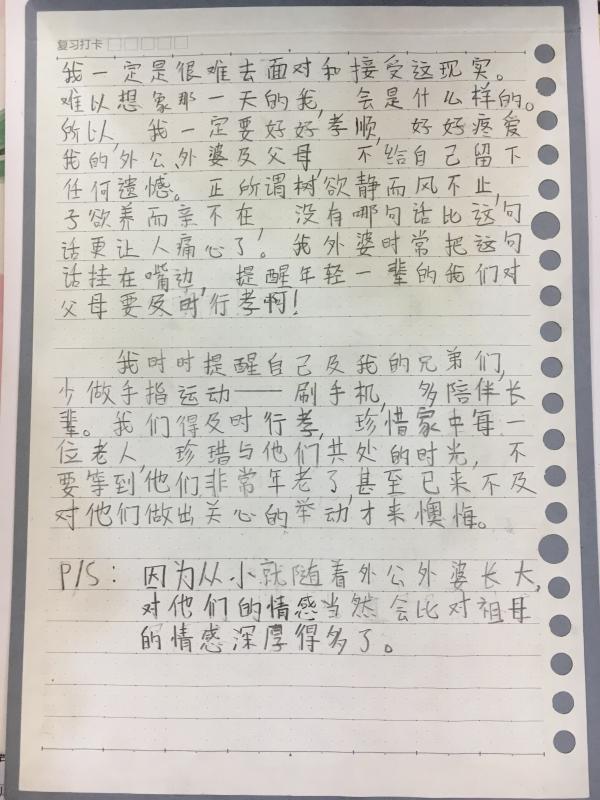 复习打卡
我一定是很难去面对和接受这现实。
难以想象那一天的我，会是什么样的。
所以，我一定要好好孝顺，好好疼爱
我的外公、外婆及父母，不给自己留下
任何遗憾。正所谓树欲静而风不止，
子欲养而亲不在，没有哪句话比这句
话更让人痛心了。我外婆时常把这句
话挂在嘴边，提醒年轻一辈的我们对
父母要及时行孝啊！
我时时提醒自己及我的兄弟们，
少做手指运动——刷手机，多陪伴长
辈。我们得及时行孝，珍惜家中每一
位老人，珍惜与他们共处的时光，不
要等到他们非常年老了，甚至已来不及
对他们做出关心的举动才来懊悔。
P/S：因为从小就随着外公外婆长大，
对他们的情感当然会比对祖母
的情感深厚得多了。